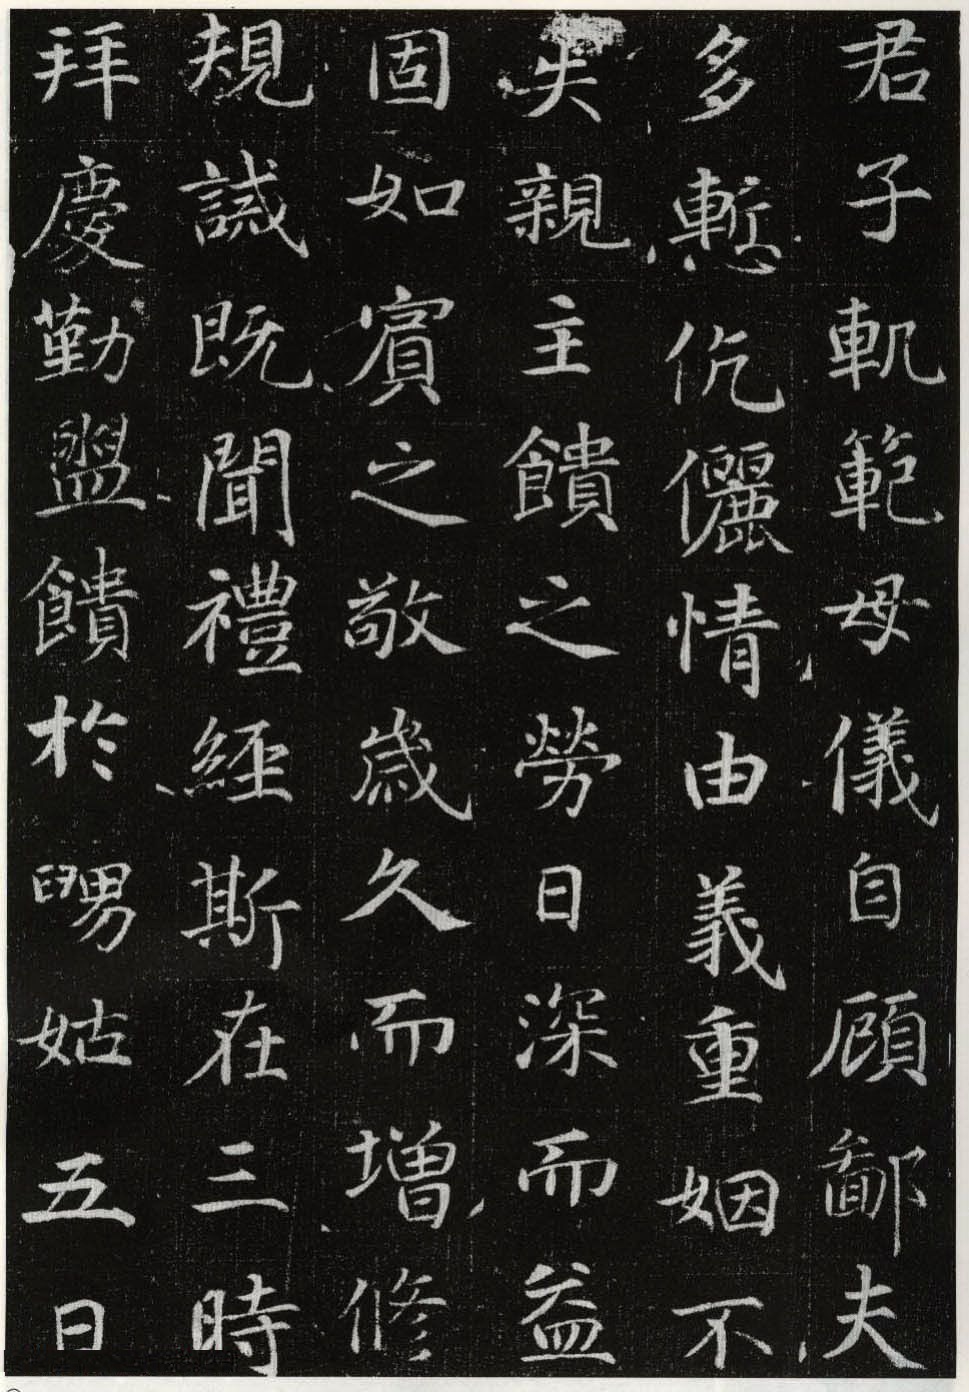 君子軓範母儀自顧鄙夫
多慙伉儷情由義重姻不
失親主饋之勞日深而益
固如賓之敬歲久而增修
規誡既聞禮經斯在三時
拜慶勤盥饋於舅姑五日